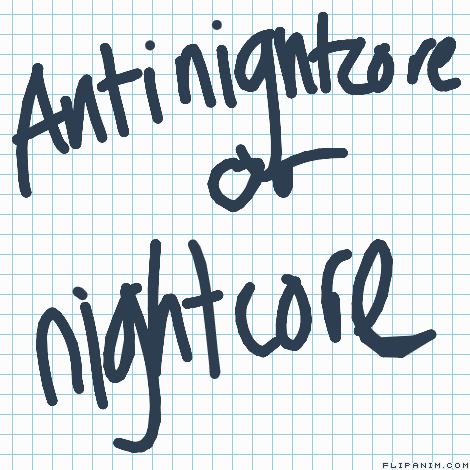 Antinightcore
or
nightcore
FLIPANIM.COM